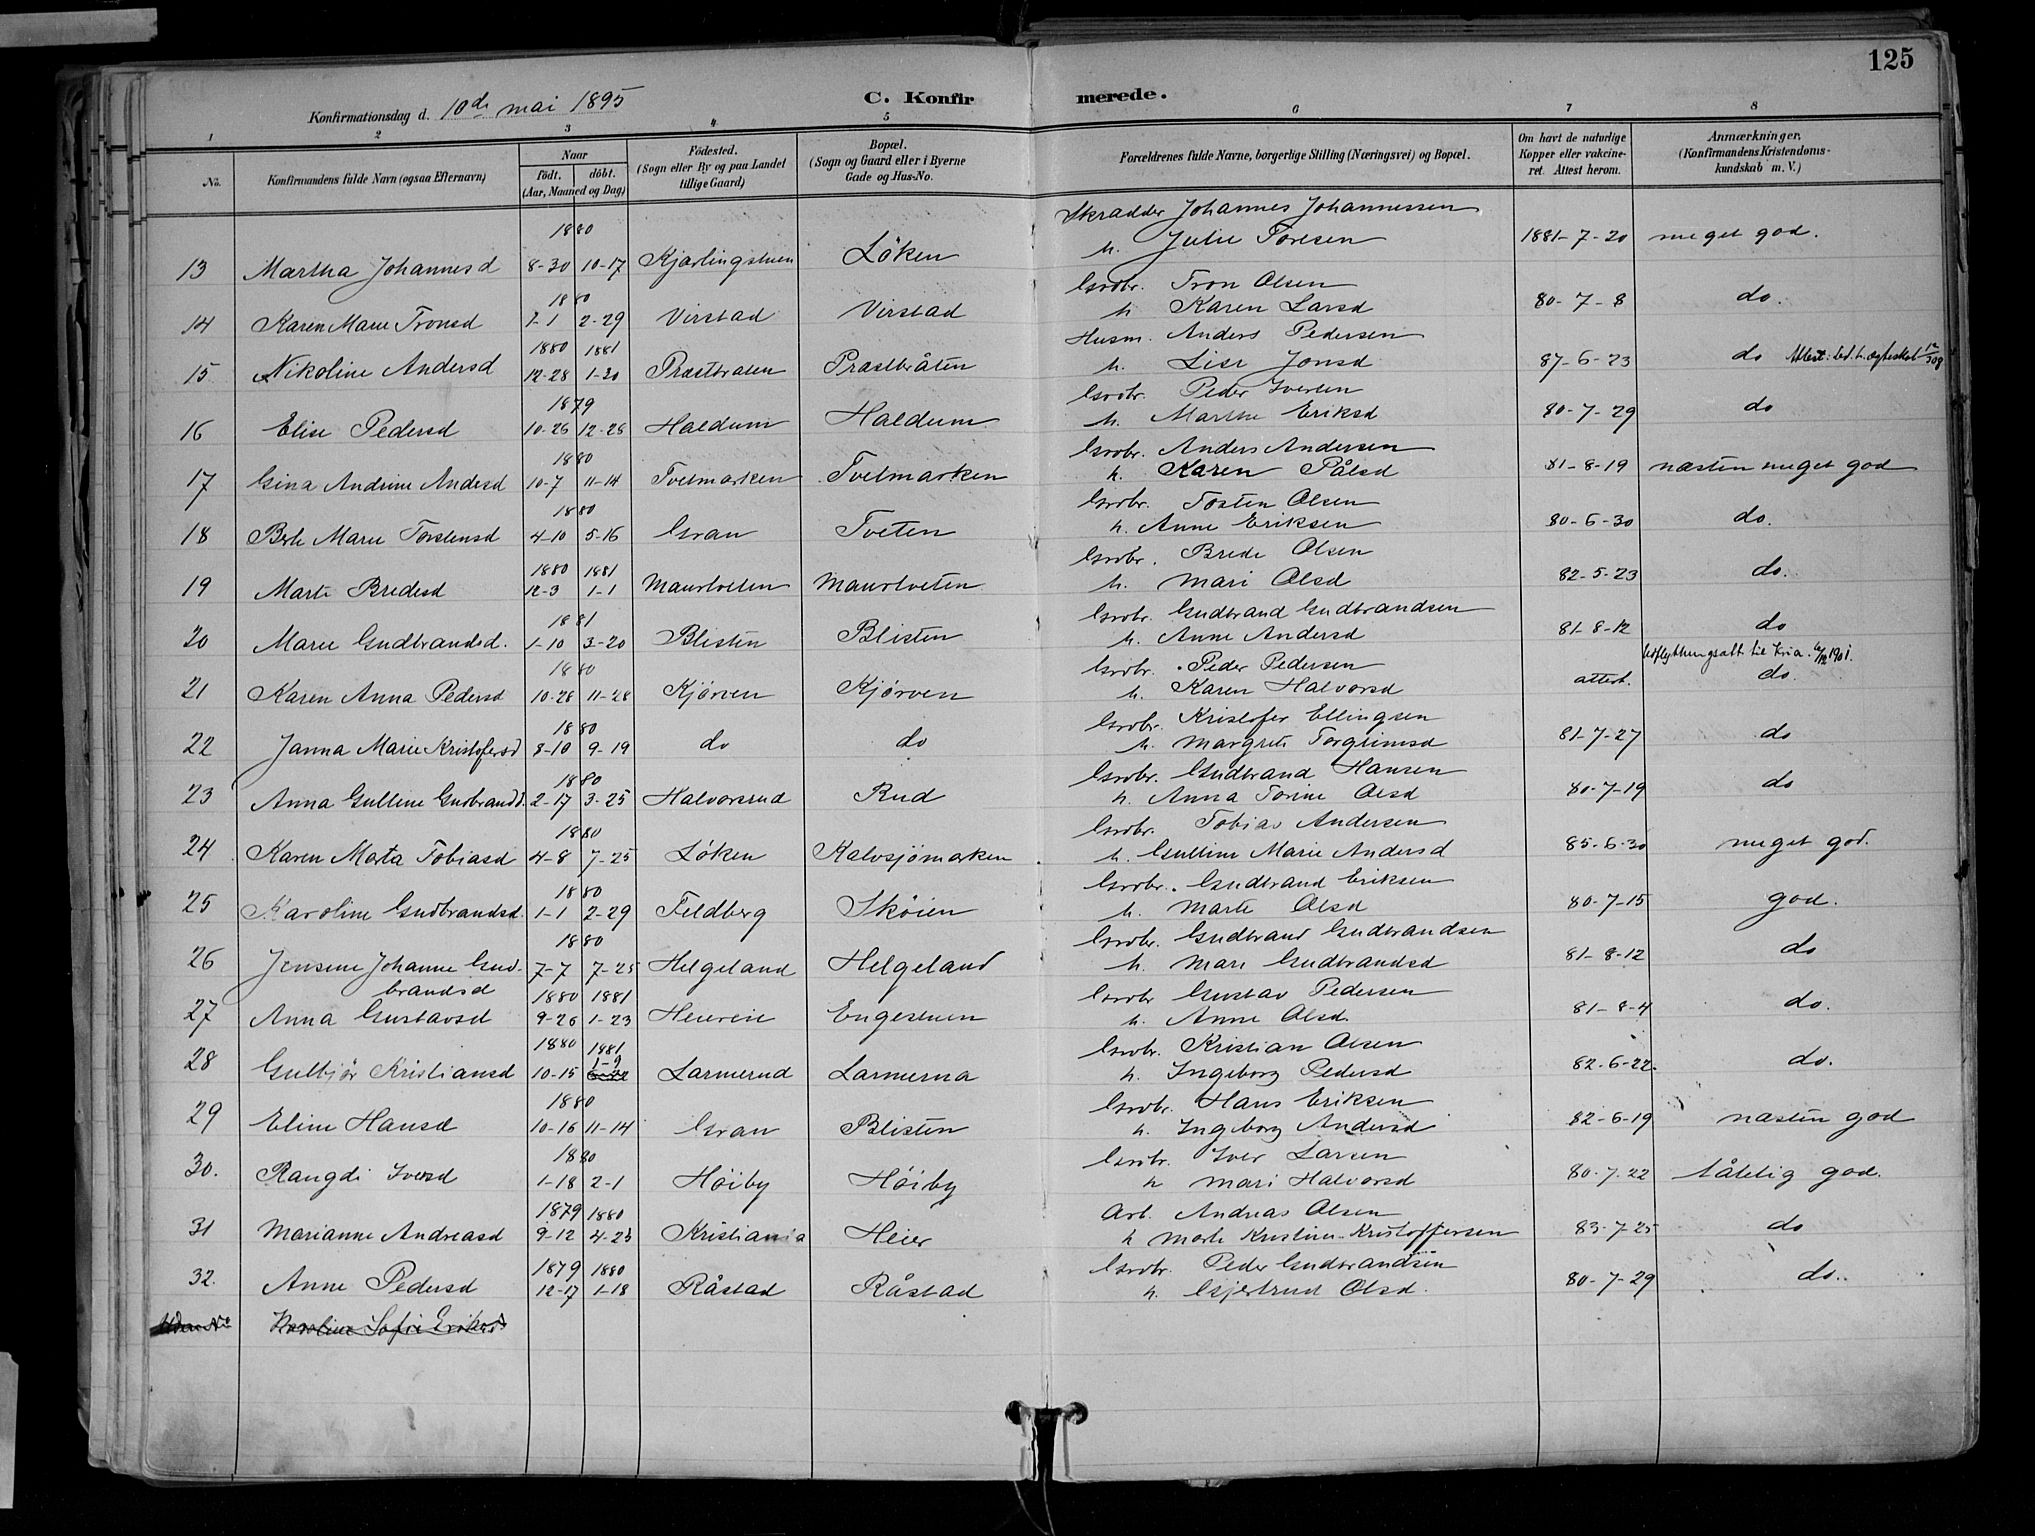 125
Konfirmationsdag d. 10de mai 1895
C. Konfirmerede.
1 2 3 4 5 6 7 8
No. Konfirmandens fulde Navn (ogsaa Efternavn) Naar født. døbt. (Aar, Maaned og Dag) Fødested. (Sogn eller By og paa Landet tillige Gaard) Bopæl. (Sogn og Gaard eller i Byerne Gade og Hus-No. Forældrenes fulde Navne, borgerlige Stilling (Næringsvei) og Bopæl. Om havt de naturlige Kopper eller vakcineret. Attest herom. Anmærkninger. (Konfirmandens Kristendomskundskab m. V.)
1880 Skradder Johannes Johannessen
13 Martha Johannesd 8-30 10-17 Kjærlingstuen Løken h. Julie Toresen 1881-7-20 meget god.
1880 Grdbr. Tron Olsen
14 Karen Marie Tronsd 1-1 2-29 Virstad Virstad h Karen Larsd 80-7-8 do.
1880 1881 Husm. Anders Pedersen
15 Nikoline Andersd 12-28 1-30 Præstbraten Præstbråten h. Lise Jonsd 87-6-23 do
1879 Grdbr. Peder Iversen
16 Elise Pedersd 10-26 12-26 Haldum Haldum h. Marthe Eriksd 80-7-29 do
1880 Grdbr. Anders Andersen
17 Gina Andrine Andersd 10-7 11-14 Tvetmarken Tvetmarken h. Karen Pålsd 81-8-19 næsten meget god
1880 Grdbr. Tosten Olsen
18 Berte Marie Torstensd 4-10 5-16 Gran Tveten h. Anne Eriksen 80-6-30 do.
1880 1881 Grdbr. Brede Olsen
19 Marte Bredesd 12-3 1-1 Maurtveten Maurtveten h. Mari Olsd 82-5-23 do.
1881 Grdbr. Gudbrand Gudbrandsen
20 Marie Gudbrandsd. 1-10 3-20 Blisten Blisten h. Anne Andersd 81-8-12 do
Udflytningsatt. til Kr.a. 6/12 1901.
1880 Grdbr. Peder Pedersen
21 Karen Anna Pedersd 10-28 11-28 Kjørven Kjørven h. Karen Halvorsd attest. do.
1880 Grdbr. Kristofer Ellingsen
22 Janna Marie Kristofersd 8-10 9-19 do do h. Margrete Torgrimsd 81-7-27 do
1880 Grdbr. Gudbrand Hansen
23 Anna Gulline Gudbrandd. 2-17 3-25 Halvorsrud Rud h. Anna Torine Olsd 80-7-19 do
1880 Grdbr. Tobias Andersen
24 Karen Marta Tobiasd 4-8 7-25 Løken Kalvsjømarken h. Gulline Marie Andersd 85-6-30 meget god.
1880 Grdbr. Gudbrand Eriksen
25 Karoline Gudbrandsd. 1-1 2-29 Feldberg Skøien h. Marte Olsd 80-7-15 god.
1880 Grdbr. Gudbrand Gudbrandsen
26 Jensine Johanne Gudbrandsd 7-7 7-25 Helgeland Helgeland h. Mari Gudbrandsd 81-8-12 do
1880 1881 Grdbr Gustav Pedersen
27 Anna Gustavsd 9-26 1-23 Heiereie Engestuen h. Anne Olsd. 81-8-4 do.
1880 1881 Grdbr. Kristian Olsen
28 Gulbjør Kristiansd 10-15 1-9 Larmerud Larmerud h. Ingeborg Pedersd 82-6-22. do.
1880 Grdbr. Hans Eriksen
29 Eline Hansd 10-16 11-14 Gran Blisten h. Ingeborg Andersd 82-6-19 næsten god
1880 Grdbr. Iver Larsen
30. Rangdi Iversd 1-18 2-1 Høiby Høiby h Mari Halvorsd 80-7-22 tålelig god.
1879 1880 Arb. Andreas Olsen
31 Marianne Andreasd 9-12 4-25 Kristiania Heier h Marte Kristine Kristoffersen 83-7-25 do
1879 1880 Grdbr. Peder Gudbrandsen
32. Anne Pedersd 12-17 1-18 Råstad Råstad h. Gjertrud Olsd. 80-7-29 do..
Uden No Karoline Sofie Eriksd